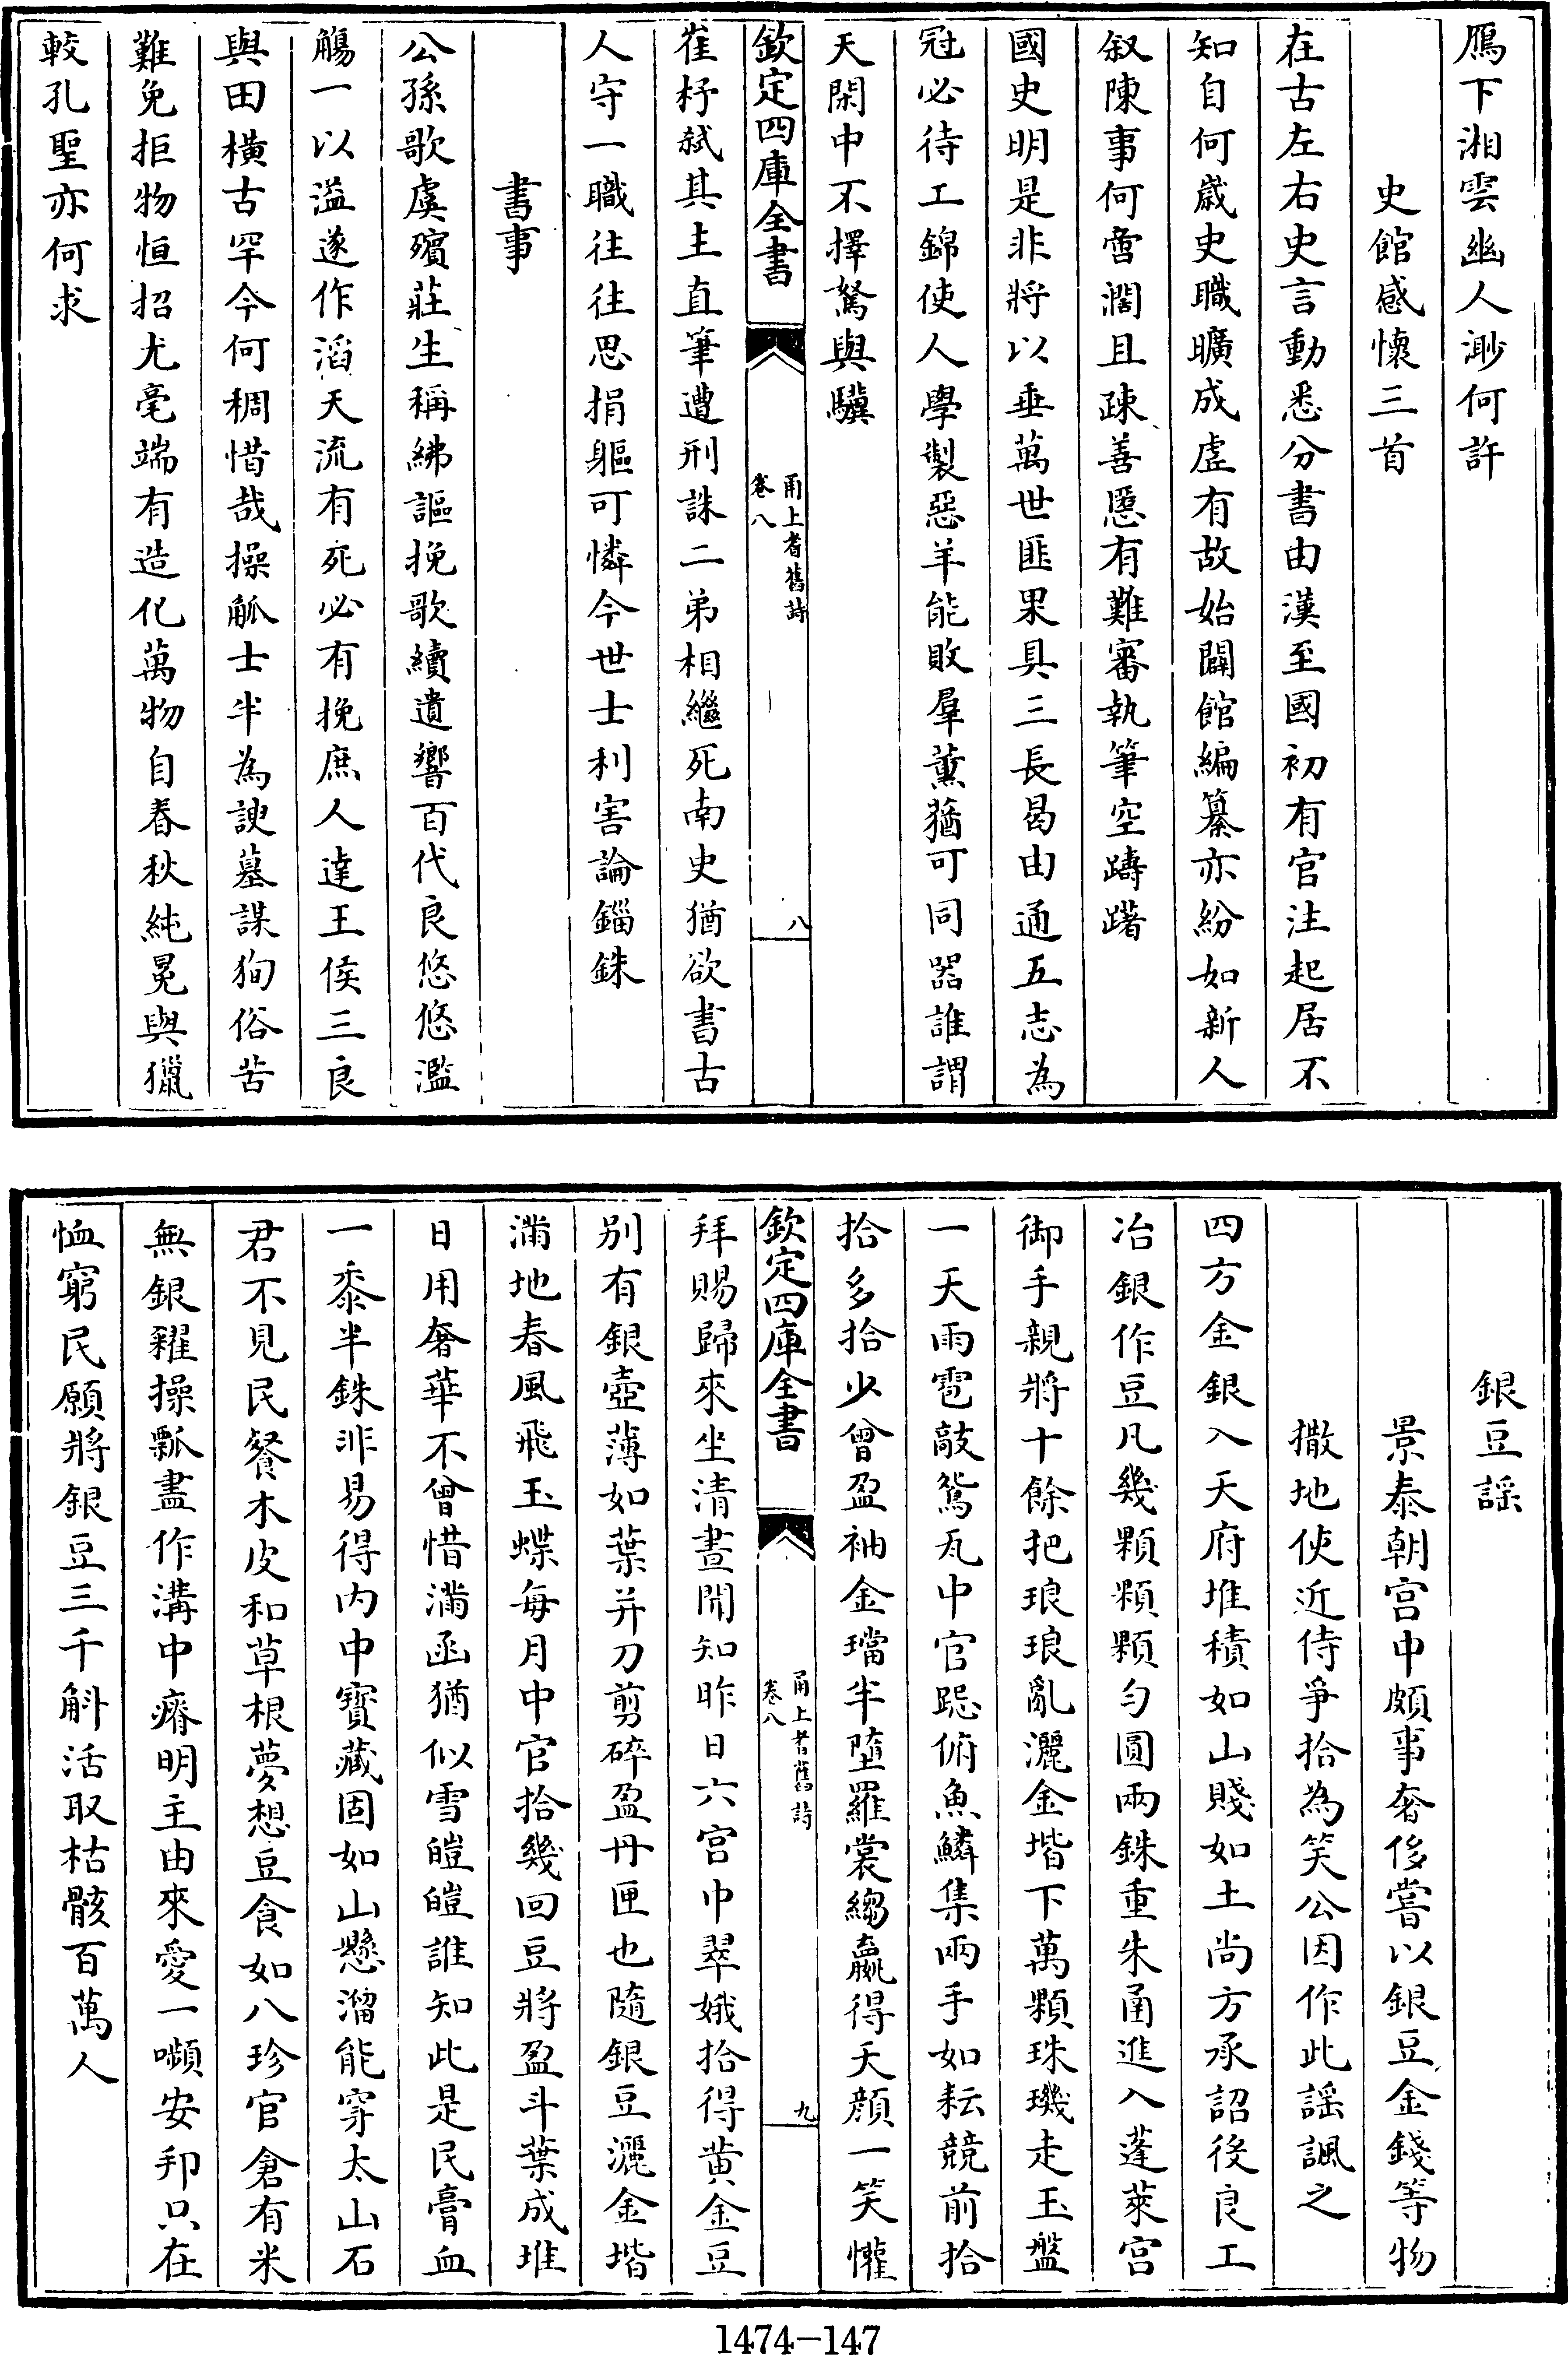 鴈下湘雲幽人渺何許
史館感懷三首
在古左右史言動悉分書由漢至國初有官注起居不
知自何歲史職曠成虛有故始闢館編纂亦紛如新人
叙陳事何啻濶且疎善慝有難審執筆空躊躇
國史明是非將以垂萬世匪果具三長曷由通五志為
冠必待工錦使人學製惡羊能敗羣薰蕕可同器誰謂
天閑中不擇駑與驥
欽定四庫全書
甬上耆舊詩
卷八
八
崔杼弑其主直筆遭刑誅二弟相繼死南史猶欲書古
人守一職往往思捐軀可憐今世士利害論錙銖
書事
公孫歌虞殯莊生稱紼謳挽歌續遺響百代良悠悠濫
觴一以溢遂作滔天流有死必有挽庶人達王侯三良
與田橫古罕今何稠惜哉操觚士半為諛墓謀狥俗苦
難免拒物恒招尤毫端有造化萬物自春秋純冕與獵
較孔聖亦何求
銀豆謡
景泰朝宫中頗事奢侈嘗以銀豆金錢等物
撒地使近侍爭拾為笑公因作此謡諷之
四方金銀入天府堆積如山賤如土尚方承詔役良工
冶銀作豆凡幾顆顆顆勻圓兩銖重朱函進入蓬萊宫
御手親將十餘把琅琅亂灑金堦下萬顆珠璣走玉盤
一天雨雹敲鴛瓦中官跽俯魚鱗集兩手如耘競前拾
拾多拾少曾盈袖金璫半墮羅裳縐贏得天顔一笑懽
欽定四庫全書
甬上耆舊詩
卷八
九
拜賜歸來坐清晝聞知昨日六宫中翠娥拾得黄金豆
别有銀壺薄如葉并刀剪碎盈丹匣也隨銀豆灑金堦
滿地春風飛玉蝶每月中官拾幾回豆將盈斗葉成堆
日用奢華不曾惜滿函猶似雪皚皚誰知此是民膏血
一黍半銖非易得内中寳藏固如山懸溜能穿太山石
君不見民餐木皮和草根夢想豆食如八珍官倉有米
無銀糴操瓢盡作溝中瘠明主由來愛一嚬安邦只在
恤窮民願將銀豆三千斛活取枯骸百萬人
1474-147